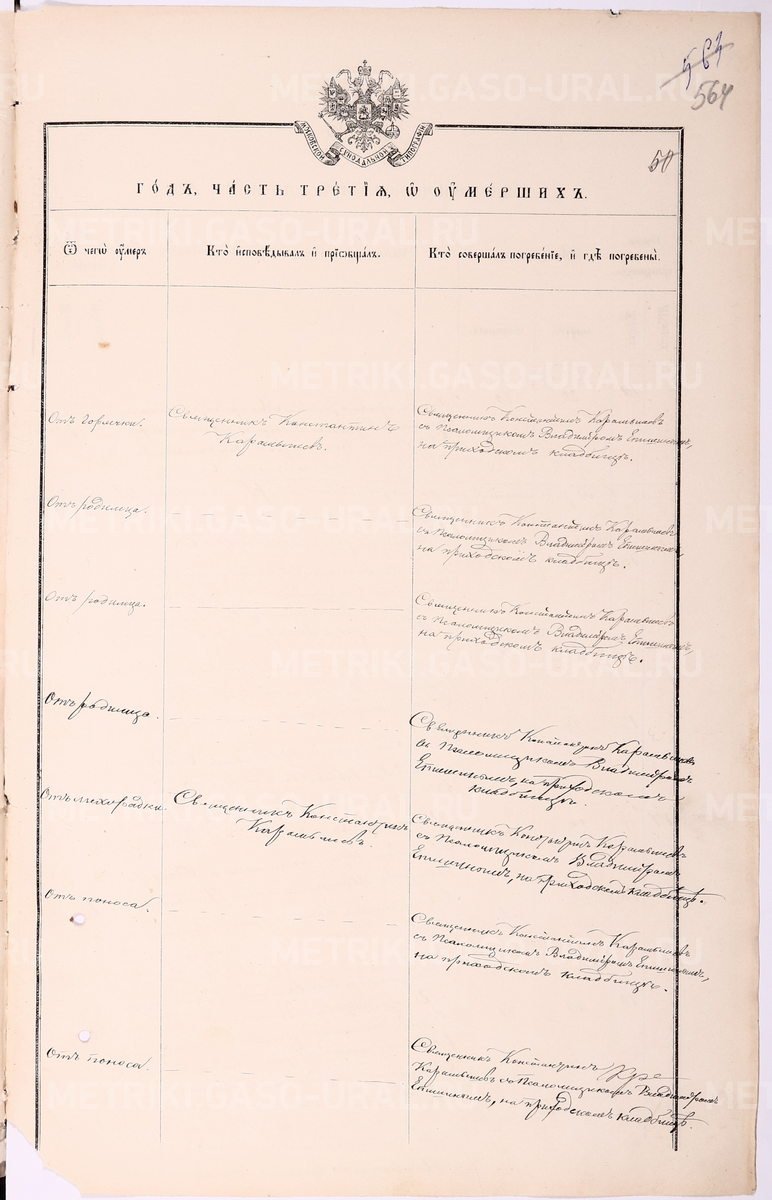 564
564
50
МОСКОВСКОЙ СѴНОДАЛЬНОЙ ТИПОГРАФІИ
ГО́ДЪ, ЧА́СТЬ ТРЕ́ТІѦ, Ѡ҆ ОУ҆МЕ́РШИХЪ.
Ѿ чегѡ̀ оу҆́меръ
Кто̀ и҆сповѣ́дывалъ и҆ прїѡбща́лъ.
Кто̀ соверша́лъ погребе́нїе, и҆ гдѣ̀ погребены̀.
Отъ горячки.
Священникъ Константинъ
Карамышевъ.
Священникъ Константинъ Карамышевъ
съ Псаломщикомъ Владиміромъ Епишинымъ,
на приходскомъ кладбищѣ.
Отъ родимца.
Священникъ Константинъ Карамышевъ
съ Псаломщикомъ Владиміромъ Епишинымъ,
на приходскомъ кладбищѣ.
Отъ родимца.
Священникъ Константинъ Карамышевъ
съ Псаломщикомъ Владиміромъ Епишинымъ,
на приходскомъ кладбищѣ.
Отъ родимца.
Священникъ Константинъ Карамышевъ
съ Псаломщикомъ Владиміромъ
Епишинымъ, на приходскомъ
кладбищѣ.
Отъ лихорадки.
Священникъ Константинъ
Карамышевъ.
Священникъ Константинъ Карамышевъ
съ Псаломщикомъ Владиміромъ
Епишинымъ, на приходскомъ кладбищѣ.
Отъ поноса.
Священникъ Константинъ Карамышевъ
съ Псаломщикомъ Владиміромъ Епишинымъ,
на приходскомъ кладбищѣ.
Отъ поноса.
Священникъ Константинъ
Карамышевъ съ Псаломщикомъ Владиміромъ
Епишинымъ, на приходскомъ кладбищѣ.
METRIKI.GASO-URAL.RU